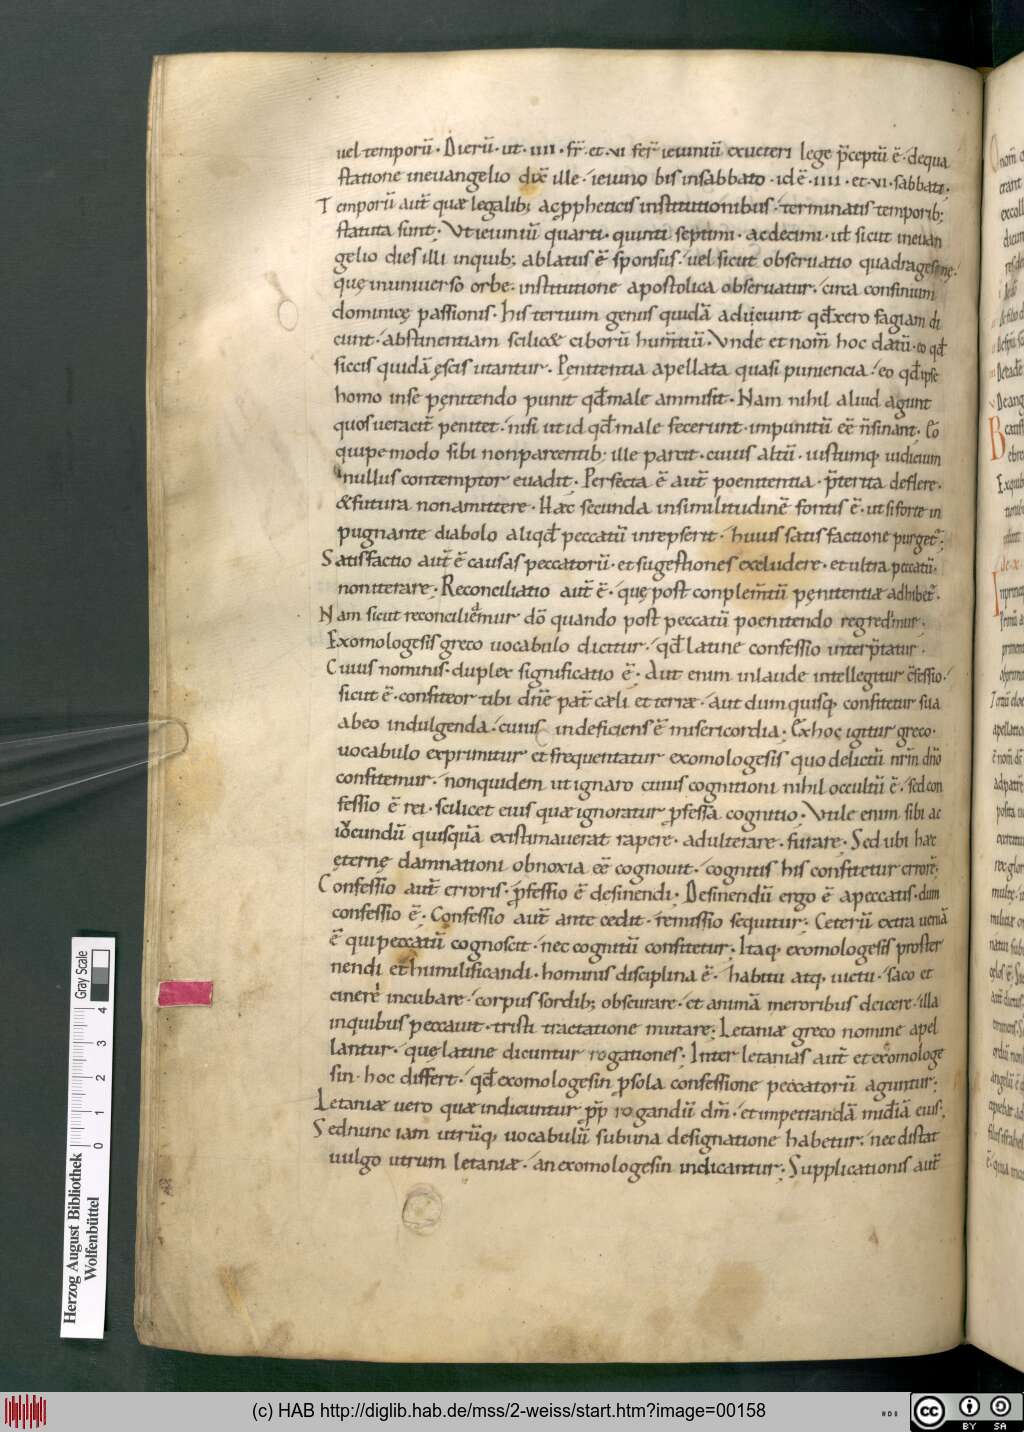 uel temporū. Dierū. ut. IIII. fr̄. et. VI fer̄ ieiuniū ex ueteri lege p̄ceptū ē. de qua
statione in euangelio dix̄ ille. ieiuno bis in sabbato. id ē. IIII. et. VI. sabbati.
Temporū aut̄ quæ legalib; ac ꝓpheticis institutionibus. terminatis temporib;
statuta sunt. Ut ieiuniū quarti. quinti septimi. ac decimi. ut sicut in euan
gelio dies illi in quib; ablatus ē sponsus. uel sicut obseruatio quadragesimę.
quę in uniuerso orbe. institutione apostolica obseruatur. circa confinium
dominicę passionis. his tertium genus quidā adijciunt qd̄ xero fagiam di
cunt. abstinentiam scilic& ciborū hum̄tiū. Unde et nom̄ hoc datū. eo qd̄
siccis quidā ęscis utantur. Pęnitentia apellata quasi puniencia. eo qd̄ ipse
homo in se pęnitendo punit qd̄ male ammisit. Nam nihil aliud agunt
quos ueracit̄ penitet. nisi ut id qd̄ male fecerunt. impunitū eē n̄ sinant. Eo
quipe modo sibi non parcentib; ille parcit. cuius altū. iustumq; iudicium
nullus contemptor euadit. Perfecta ē aut̄ poenitentia. p̄terita deflere.
& futura non amittere. Hæc secunda in similitudinē fontis ē. ut si forte in
pugnante diabolo aliqd̄ peccatū inrepserit. huius satisfactione purget̄.
Satisfactio aut̄ ē causas peccatorū. et sugestiones excludere. et ultra peccatū.
non iterare. Reconciliatio aut̄ ē. quę post conplem̄tū pęnitentiæ adhibet̄.
Nam sicut reconciliemur dō quando post peccatū poenitendo regredimur.
Exomologesis greco uocabulo dicitur. qd̄ latine confessio interp̄tatur.
Cuius nominis. duplex significatio ē. Aut enim in laude intellegitur c̄fessio.
sicut ē. confiteor tibi dn̄e pat̄ cæli et terræ. aut dum quisq; confitetur sua
ab eo indulgenda. cuius indeficiens ē misericordia. Ex hoc igitur greco.
uocabulo exprimitur et frequentatur exomologesis quo delictū nr̄m dn̄o
confitemur. non quidem ut ignaro cuius cognitioni nihil occultū ē. sed con
fessio ē rei. scilicet eius quæ ignoratur ꝓfessa cognitio. Utile enim sibi ac
iocundū quisquā existimauerat rapere. adulterare. furare. Sed ubi hæc
ęternę damnationi obnoxia eē cognouit. cognitis his confitetur errorē.
Confessio aut̄ erroris. ꝓfessio ē desinendi. Desinendū ergo ē a peccatis. dum
confessio ē. Confessio aut̄ ante cedit. remissio sequitur. Ceterū extra ueniā
ē qui peccatū cognoscit. nec cognitū confitetur. Itaq; exomologesis proster
nendi et humilificandi. hominis disciplina ē. habitu atq; uictu. saco et
cinere incubare. corpus sordib; obscurare. et animā meroribus deicere. illa
in quibus peccauit. tristi tractatione mutare. Letaniæ greco nomine apel
lantur. quę latine dicuntur rogationes. Inter letanias aut̄ et exomologe
sin. hoc differt. qd̄ exomologesin ꝓ sola confessione peccatorū aguntur.
Letaniæ uero quæ indicuntur ꝓp rogandū dm̄. et impetrandā mīdiā eius.
Sed nunc iam utrūq; uocabulū sub una designatione habetur. nec distat
uulgo utrum letaniæ. an exomologesin indicantur. Supplicationis aut̄
Herzog August Bibliothek
Wolfenbüttel
0 1 2 3 4
Gray Scale
(c) HAB http://diglib.hab.de/mss/2-weiss/start.htm?image=00158
HAB
cc BY SA